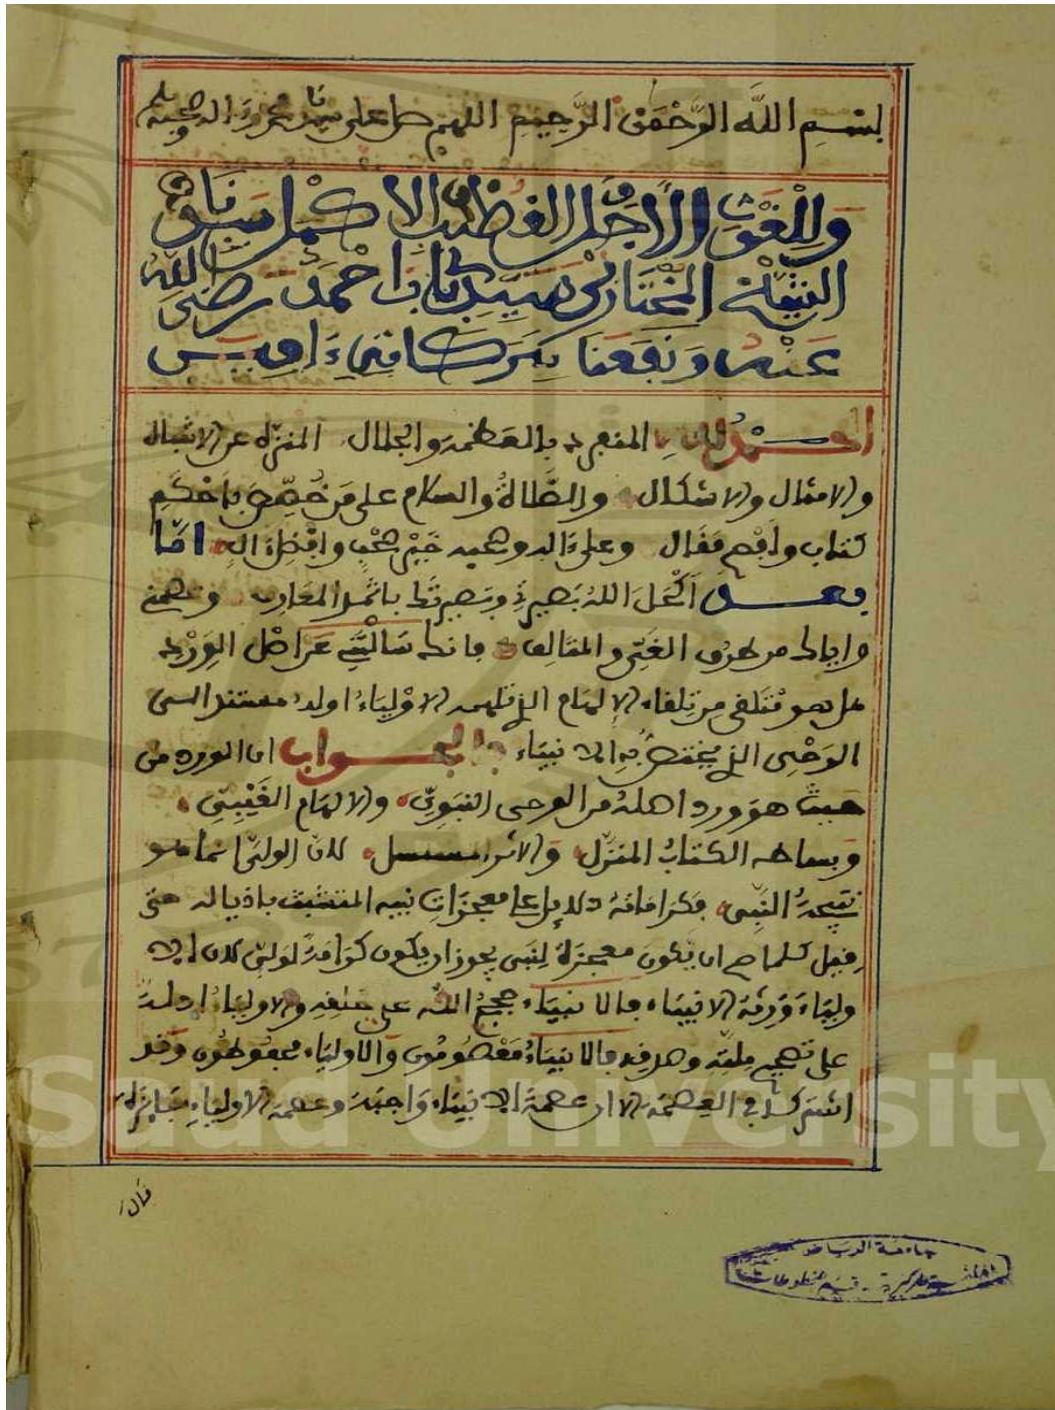 بسم الله الرحمن الرحيم اللهم صل على سيدنا محمد وءاله وصحبه وسلم
وللغوث الأجل القطب الأكمل سيدنا
الشيخ المختار بن سيد بن أحمد رضي الله
عنه ونفعنا ببركاته ءامين
الحمد لله المنفرد بالعظمة والجلال المنزه عن الاشباه
والامثال والاشكال والصلاة والسلام على من خصص باحكم
كتاب وافصح مقال وعلى ءاله وصحبه خير صحب وافضل ءال اما
بعد اكحل الله بصيرتي وبصيرتك باثمد المعارف وعصمني
واياك من طرق الغي والمتالف فانك سالتني عن اصل الورد
هل هو متلقى من تلقاء الإلهام الذي تلهمه الاولياء اوله مستند الى
الوحي الذي يختص به الانبياء فالجواب ان الورد من
حيث هو ورد اصله من الوحي النبوي والالهام الغيبي
وبساطه الكتاب المنزل والاثر المسلسل لان الولي انما هو
نتيجة النبي فكراماته دلايل على معجزات نبيه المتشبث باذياله حتى
قيل كلما صح ان يكون معجزة لنبي يجوز ان يكون كرامة لولي لان الا
ولياء ورثة الانبياء فالانبياء حجج الله على خلقه والاولياء ادلة
على صحيح ملته وصدقه فالانبياء معصومون والاولياء محفوظون وقد
اشتركا في العصمة الا ان عصمة الانبياء واجبة وعصمة الاولياء جايزة
قال
جامعة الرياض
المكتبة المركزية - قسم المخطوطات
Saud University